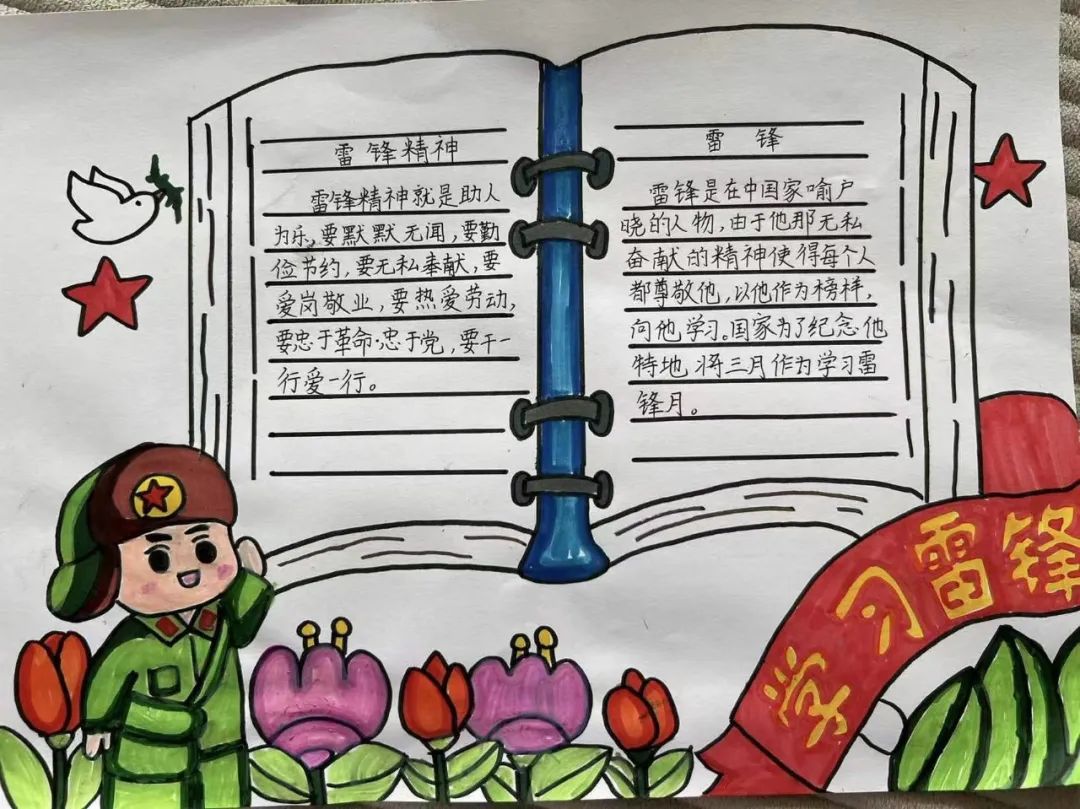 雷锋精神
雷锋精神就是助人
为乐,要默默无闻,要勤
俭节约,要无私奉献,要
爱岗敬业,要热爱劳动,
要忠于革命·忠于党,要干一
行爱一行。
雷锋
雷锋是在中国家喻户
晓的人物,由于他那无私
奋献的精神使得每个人
都尊敬他,以他作为榜样,
向他学习。国家为了纪念他
特地将三月作为学习雷
锋月。
学习雷锋